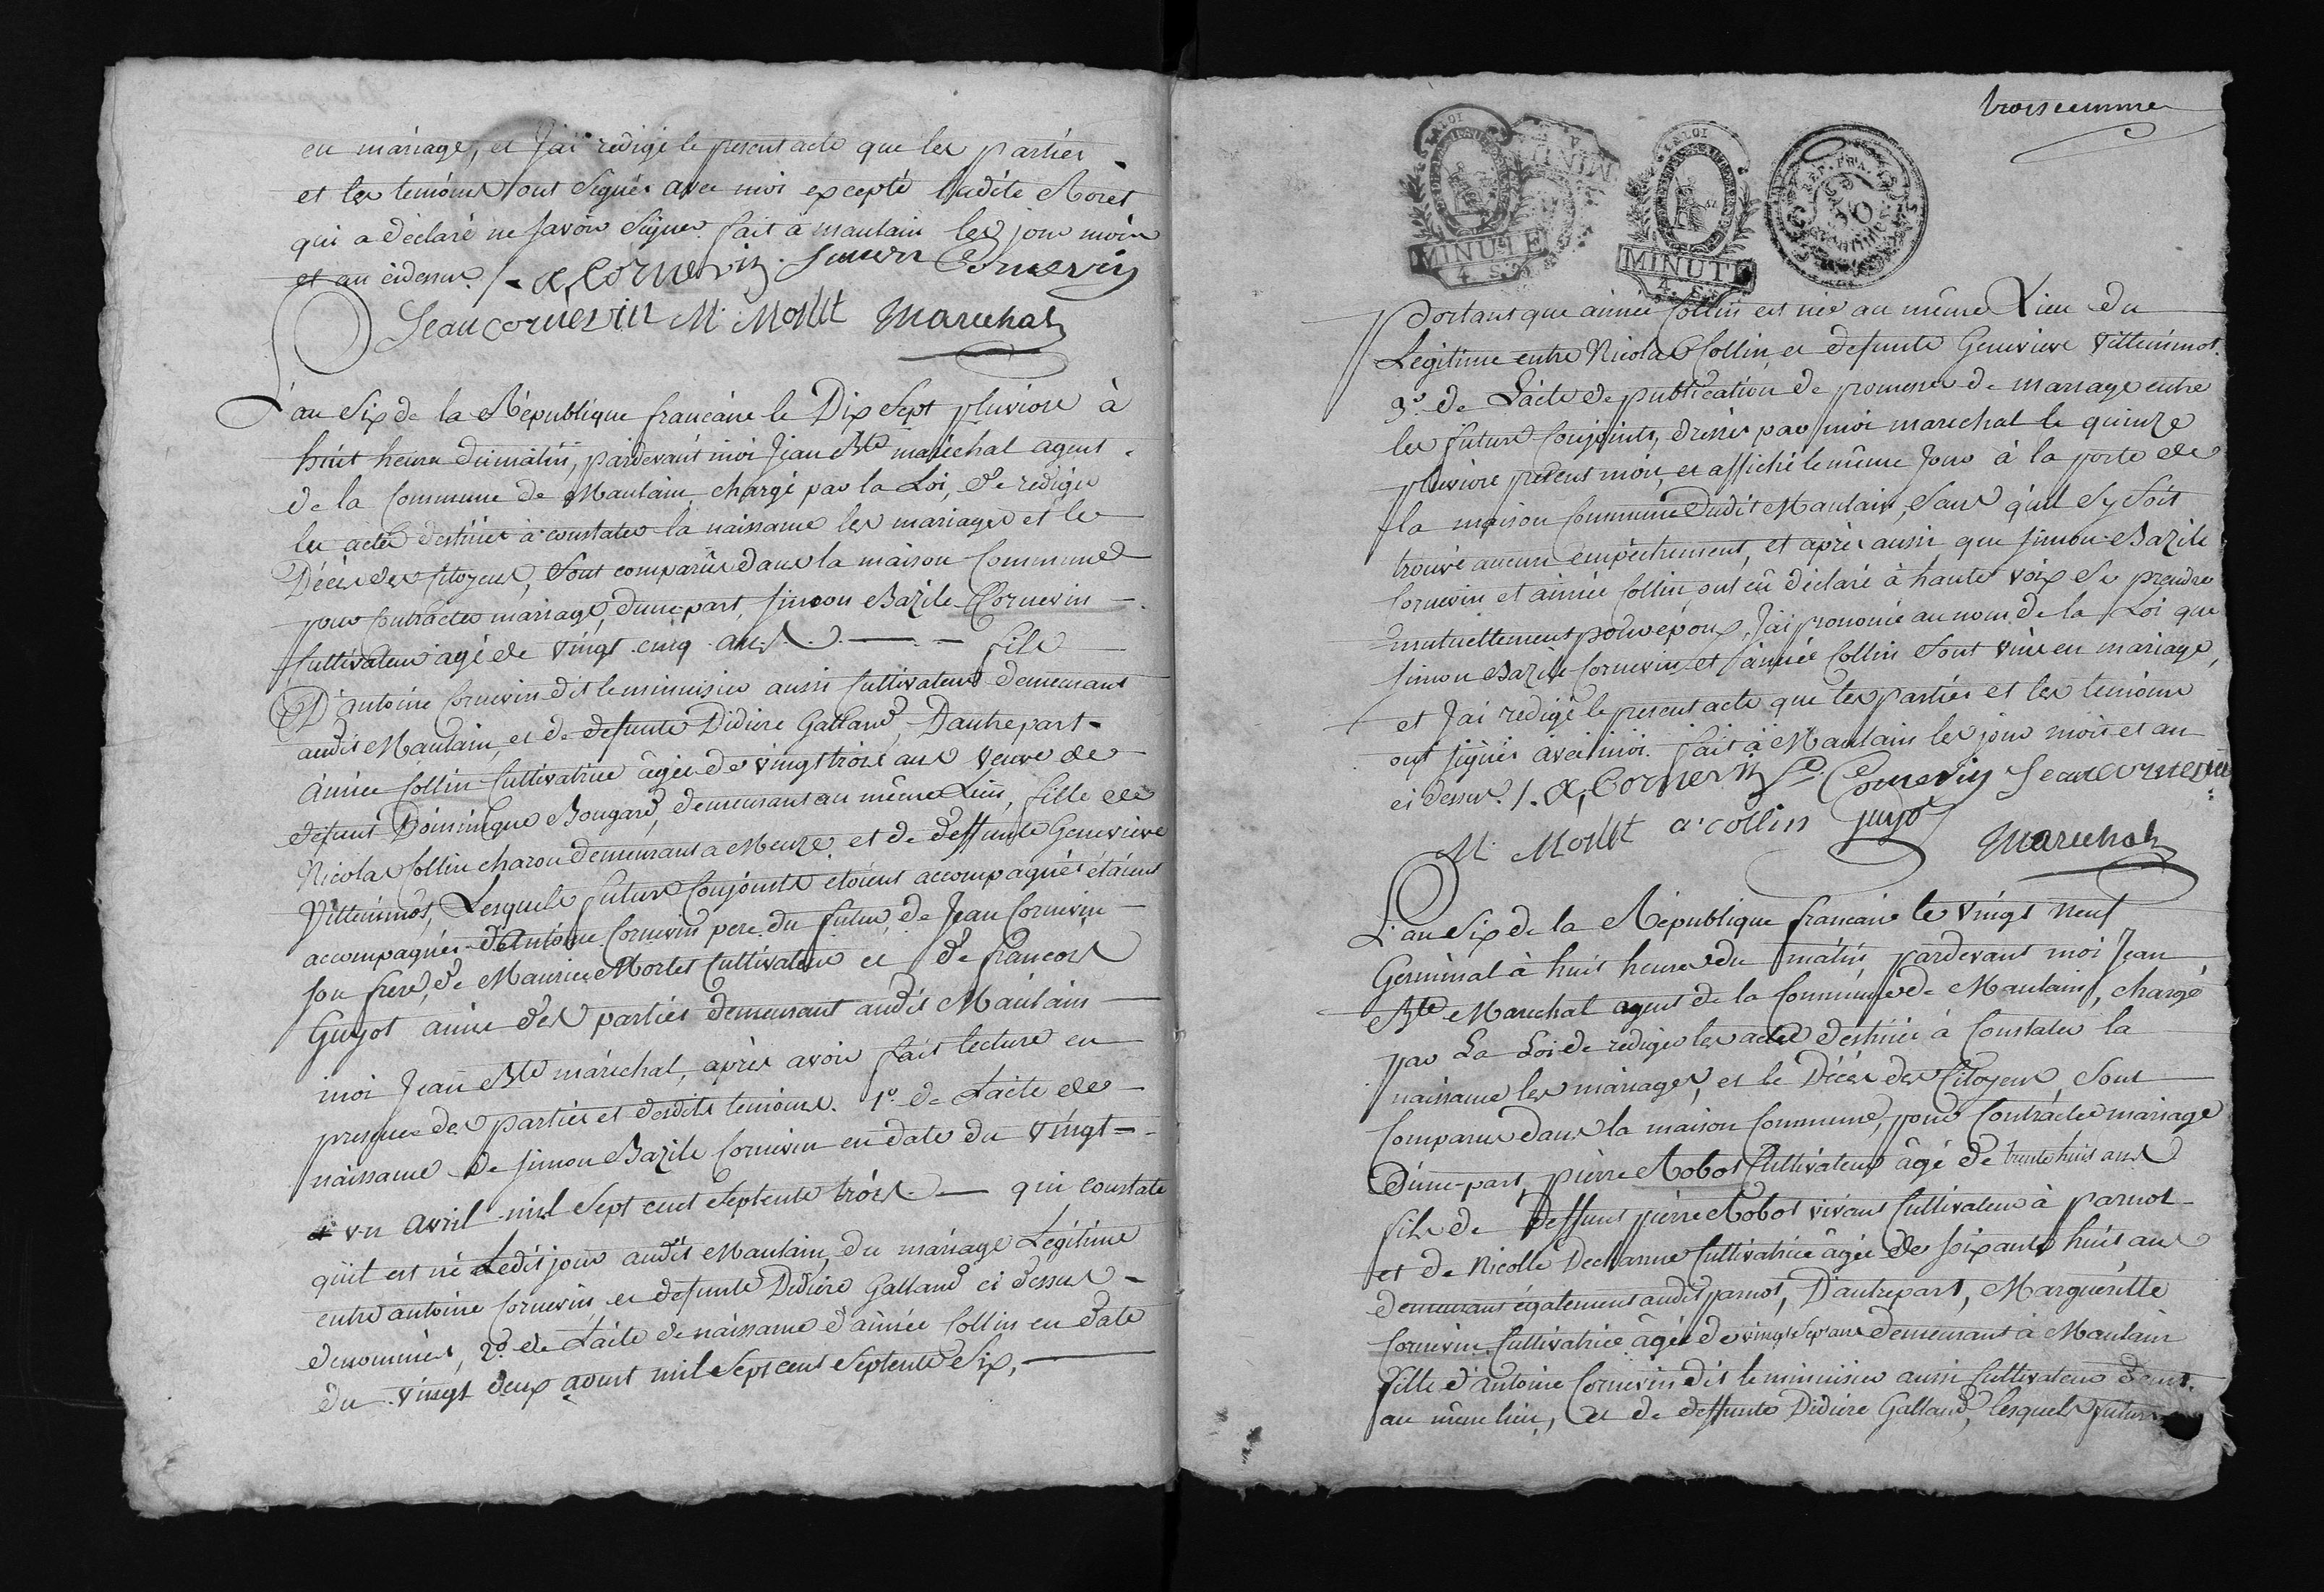 en mariage, et J'ai redigé le present acte que les parties
et les temoins ont Signés avec moi excepté ladite Moret
qui a déclaré ne savoir Signer. fait à maulain les jour mois
et an cidessus. /. A, Cornevin. Simon Cornevin
Jean cornevin M. Mortet Marechal
L'an Six de la République francaise le Dix Sept pluviose à
huit heures du matin, pardevant moi Jean Bte maréchal agent
de la Commune de Maulain, chargé par la Loi, de rediger
les actes destinés à constater la naissance les mariages et le
Décès des Citoyens, Sont comparus dans la maison Commune
pour Contracter mariage, dune part, Simon Bazile Cornevin
Cultivateur agé de vingt cinq ans fils
D'antoine Cornevin dit le minuisier aussi Cultivateur demeurant
audit Maulain, et de defunte Didiere Galland, D'autre part
aimée Collin Cultivatrice âgée de vingt trois ans veuve de
defunt Dominique Bougard, demeurant au même Lieu, fille de
Nicolas Collin charon demeurant a Meuze et de deffunte Genevieve
Villeminot, Lesquels futurs Conjoints etoient accompagnés étaient
accompagnés d'Antoine Cornevin pere du futur, de Jean Cornevin
son frere, de Maurice Mortet Cultivateur et de francois
Guyot amis des parties demeurant audit Maulain
moi Jean Bte maréchal, après avoir fait lecture en
presence des parties et desdits temoins. 1o. de L'acte de
naissance de Simon Bazile Cornevin en date du vingt
vn avril mil Sept cent Septente trois qui constate
qu'il est né Ledit jour audit Maulain, du mariage Légitime
entre antoine Cornevin et defunte Didiere Galland ci dessus
denommés, 2o. de L'acte de naissance d'aimée Collin en date
du vingt deux aoust mil Sept cent Septente Six,
troisiemme
MINUTE
4. S.
MINUTE
4. S.
portant que aimée Collin est née au même Lieu du
Légitime entre Nicolas Collin et defunte Genevieve Villeminot.
3o. de L'acte de publication de promesse de mariage entre
les futurs Conjoints, dressé par moi marechal le quinze
pluviose present mois, et affiché le même Jour à la porte de
la maison Commune dudit Maulain, Sans qu'il Sy Soit
trouvé aucun empêchement, et après aussi que Simon Bazile
Cornevin et aimée Collin ont eû déclaré à haute voix Se prendre
mutuellement pour époux, J'ai prononcé au nom de la Loi que
Simon Bazile Cornevin et aimée Collin Sont vnis en mariage,
et J'ai redigé le present acte que les parties et les temoins
ont signés avec moi. fait à Maulain les jour mois et an
ci dessus. /. A, Cornevin S. Cornevin Jean cornevin
M. Mortet a. collin guyot
Marechal
L'an Six de la République francaise le vingt neuf
Germinal à huit heures du matin pardevant moi Jean
Bte Marechal agent de la Commune de Maulain, chargé
par La Loi de rediger les actes destinés à Constater la
naissance les mariages, et le Décès des Citoyens, Sont
Comparus dans la maison Commune, pour Contracter mariage
D'une part, pierre Robot Cultivateur âgé de trente huit ans
fils de deffunt pierre Robot vivant Cultivateur à parnot
et de Nicolle Decharme Cultivatrice âgée de soixante huit ans
demeurant également audit parnot, D'autre part, Marguéritte
Cornevin Cultivatrice âgée de vingt Sept ans demeurant à Maulain
fille d'antoine Cornevin dit le minuisier aussi Cultivateur demt.
au même lieu, et de deffunte Didiere Galland, lesquels futurs